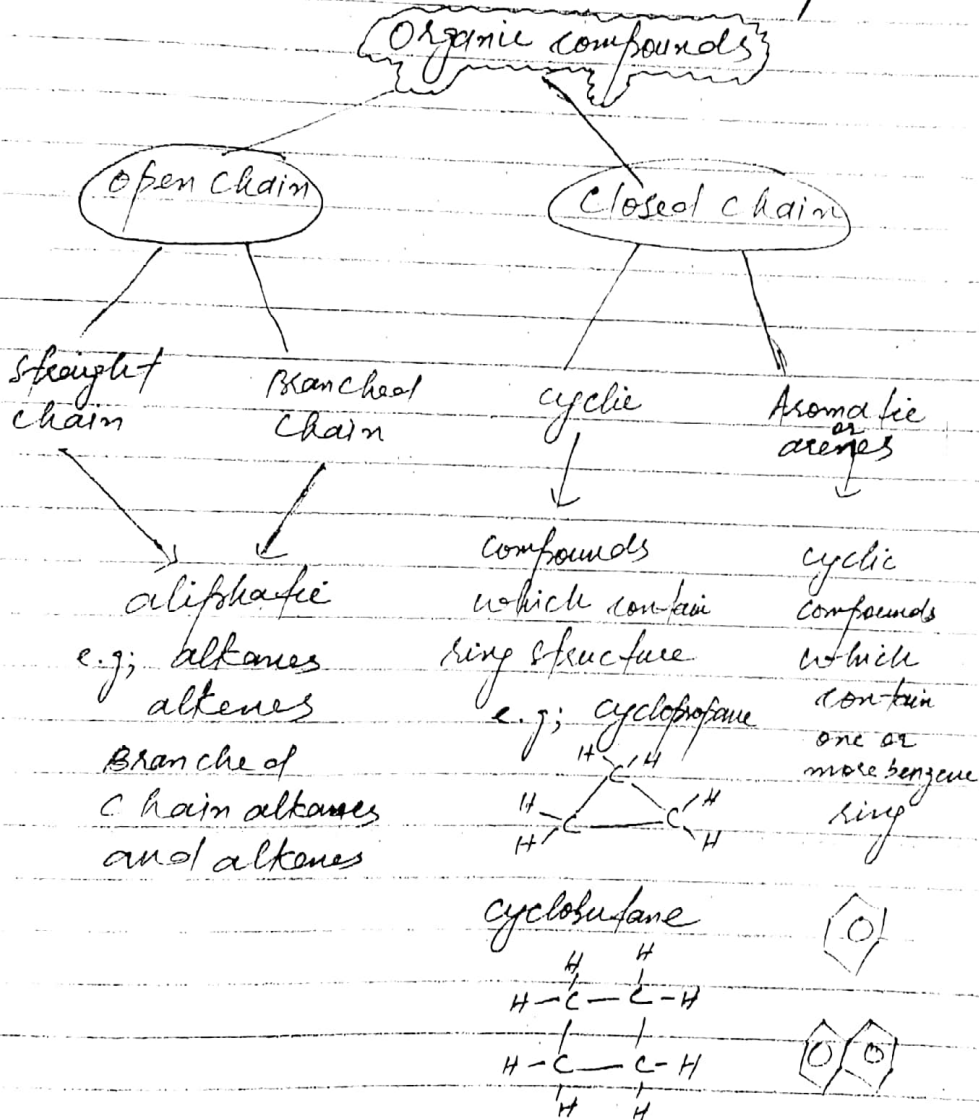 Organic compounds
Open Chain
Closed Chain
Straight
chain
Branched
Chain
cyclic
Aromatic
or
arenes
aliphatic
e.g; alkanes
alkenes
Branched
Chain alkanes
and alkenes
compounds
which contain
ring structure
e.g; cyclopropane
H H
C
H C C H
H H
cyclobutane
H H
H-C-C-H
H-C-C-H
H H
cyclic
compounds
which
contain
one or
more benzene
ring